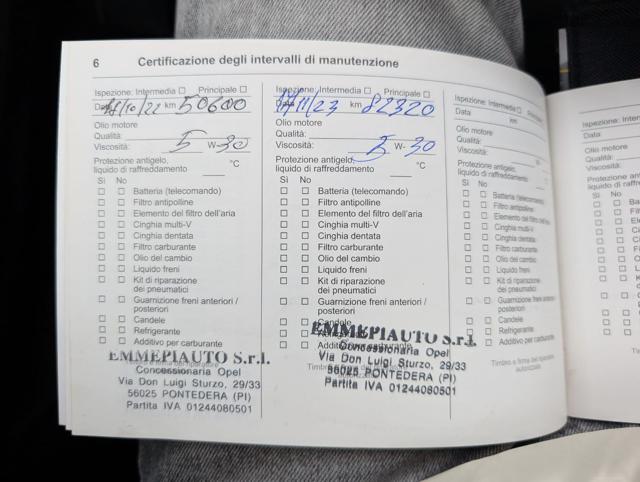 6 Certificazione degli intervalli di manutenzione
Ispezione: Intermedia ☐ Principale ☐
Data 18/10/22 km 50600
Olio motore
Qualità:
Viscosità: 5 W- 30
Protezione antigelo,
liquido di raffreddamento °C
Sì No
☐ ☐ Batteria (telecomando)
☐ ☐ Filtro antipolline
☐ ☐ Elemento del filtro dell'aria
☐ ☐ Cinghia multi-V
☐ ☐ Cinghia dentata
☐ ☐ Filtro carburante
☐ ☐ Olio del cambio
☐ ☐ Liquido freni
☐ ☐ Kit di riparazione
dei pneumatici
☐ ☐ Guarnizione freni anteriori /
posteriori
☐ ☐ Candele
☐ ☐ Refrigerante
☐ ☐ Additivo per carburante
EMMEPIAUTO S.r.l.
Concessionaria Opel
Via Don Luigi Sturzo, 29/33
56025 PONTEDERA (PI)
Partita IVA 01244080501
Ispezione: Intermedia ☐ Principale ☐
Data 17/11/23 km 82320
Olio motore
Qualità:
Viscosità: 5 W- 30
Protezione antigelo,
liquido di raffreddamento °C
Sì No
☐ ☐ Batteria (telecomando)
☐ ☐ Filtro antipolline
☐ ☐ Elemento del filtro dell'aria
☐ ☐ Cinghia multi-V
☐ ☐ Cinghia dentata
☐ ☐ Filtro carburante
☐ ☐ Olio del cambio
☐ ☐ Liquido freni
☐ ☐ Kit di riparazione
dei pneumatici
☐ ☐ Guarnizione freni anteriori /
posteriori
☐ ☐ Candele
☐ ☐
☐ ☐ Additivo per carburante
EMMEPIAUTO S.r.l.
Concessionaria Opel
Via Don Luigi Sturzo, 29/33
56025 PONTEDERA (PI)
Partita IVA 01244080501
Ispezione: Intermedia ☐ Principale ☐
Data km
Olio motore
Qualità:
Viscosità: W-
Protezione antigelo,
liquido di raffreddamento °C
Sì No
☐ ☐ Batteria (telecomando)
☐ ☐ Filtro antipolline
☐ ☐ Elemento del filtro dell'aria
☐ ☐ Cinghia multi-V
☐ ☐ Cinghia dentata
☐ ☐ Filtro carburante
☐ ☐ Olio del cambio
☐ ☐ Liquido freni
☐ ☐ Kit di riparazione
dei pneumatici
☐ ☐ Guarnizione freni anteriori /
posteriori
☐ ☐ Candele
☐ ☐ Refrigerante
☐ ☐ Additivo per carburante
Timbro e firma del riparatore
autorizzato
Ispezione:
Data
Olio motore
Qualità:
Viscosità:
Sì No